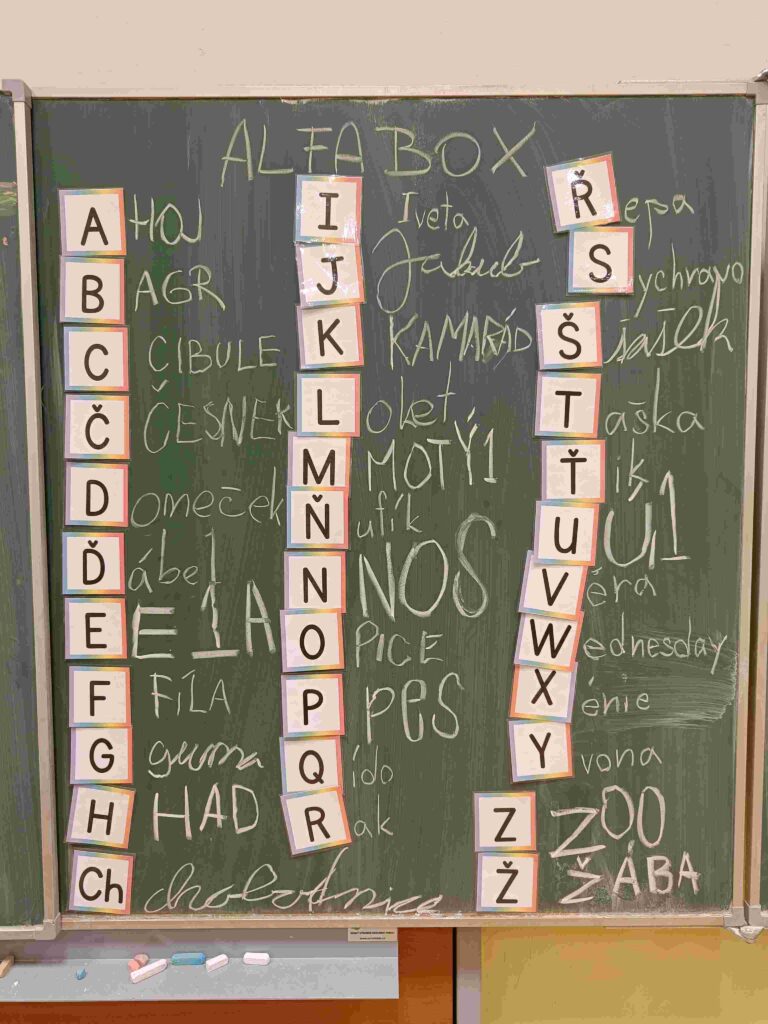 ALFABOX
A HOJ
B AGR
C CIBULE
Č ČESNEK
D omeček
Ď ábel
E E1A
F FÍLA
G guma
H HAD
Ch chobotnice
I Iveta
J Jakub
K KAMARÁD
L oket
M MOTÝ1
Ň ufík
N NOS
O PICE
P PES
Q ído
R ak
Ř epa
S ychravo
Š šašek
T aška
Ť ik
U Ú1
V ěra
W ednesday
X énie
Y vona
Z ZOO
Ž ŽÁBA